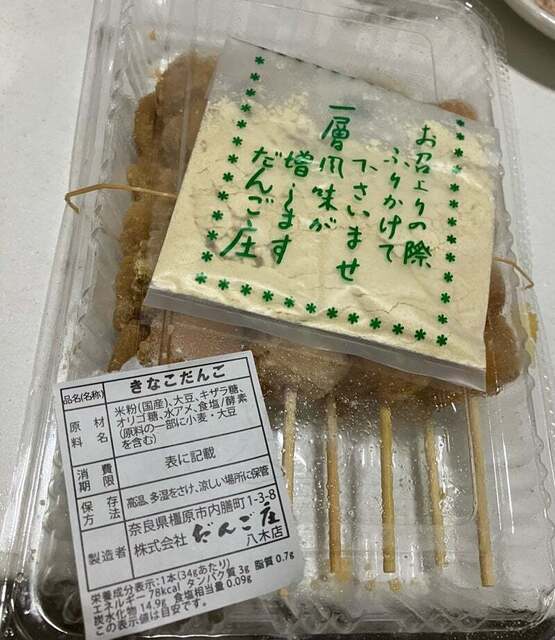 お召上りの際
ふりかけて
下さいませ
一層風味が
増します
だんご庄
品名(名称)
きなこだんご
原材料名
米粉(国産)、大豆、キザラ糖、
オリゴ糖、水アメ、食塩/酵素
(原料の一部に小麦・大豆
を含む)
消費期限
表に記載
保存方法
高温、多湿をさけ、涼しい場所に保管
製造者
奈良県橿原市内膳町1-3-8
株式会社 だんご庄
八木店
栄養成分表示:1本(34gあたり)
エネルギー 78kcal タンパク質 3g 脂質 0.7g
炭水化物 14.9g 食塩相当量 0.09g
この表示値は目安です。